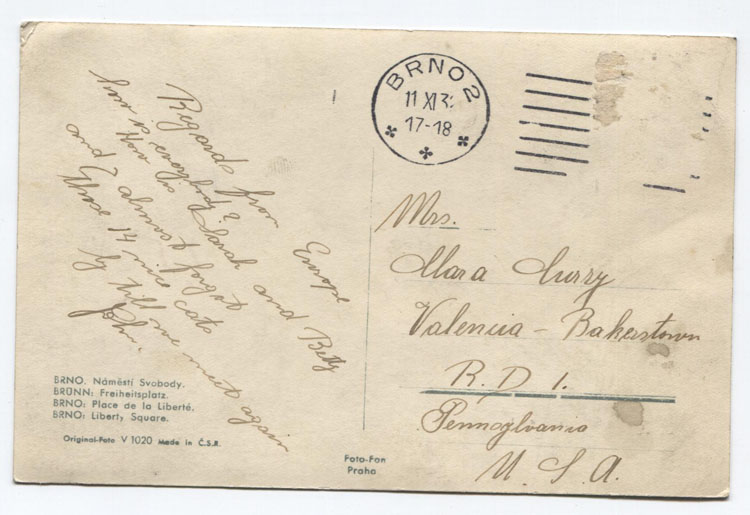 Regards from Europe
how is everybody?
How is Sarah and Betty
and I almost forgot
those 14 nice cats
By till we meet again
John.
BRNO 2
11 XI 3
17-18
Mrs.
Clara Curry
Valencia - Bakerstown
R. D 1.
Pennsylvania
U. S. A.
BRNO. Náměstí Svobody.
BRÜNN: Freiheitsplatz.
BRNO: Place de la Liberté.
BRNO: Liberty Square.
Original-Foto V 1020 Made in Č.S.R.
Foto-Fon
Praha